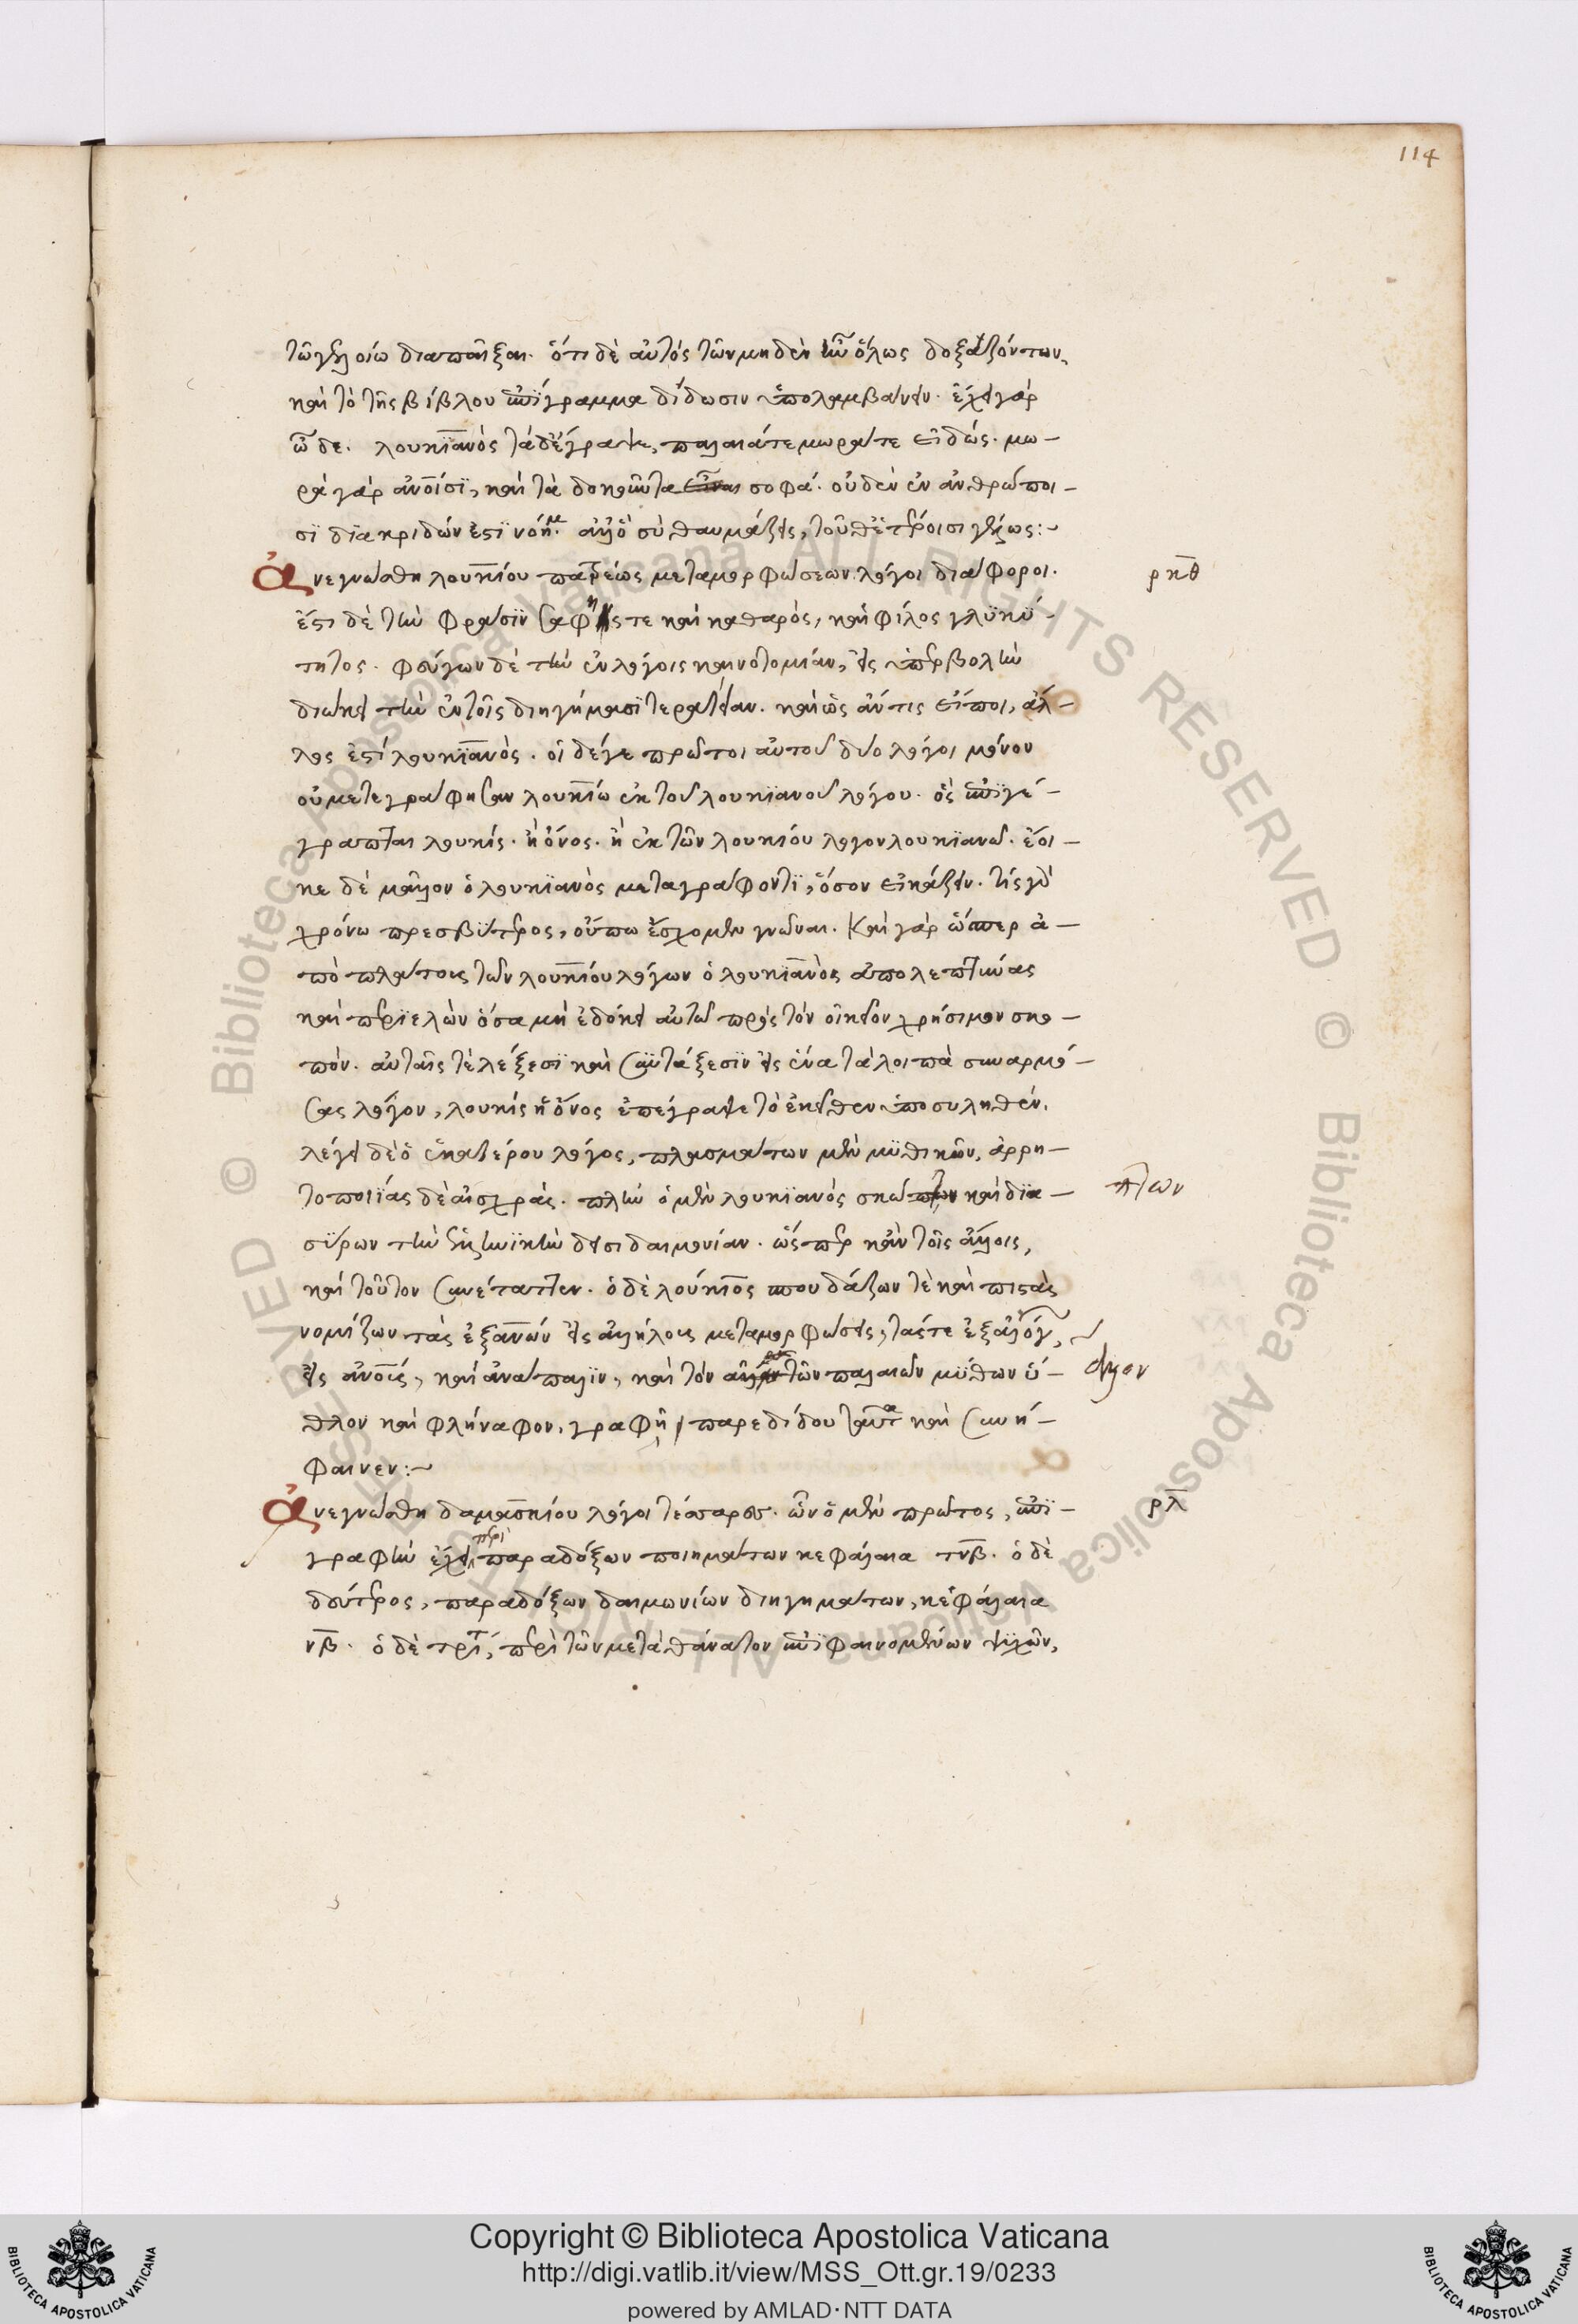 114
τῶ γελοίω διαπαῖξαι. ὅτι δὲ αὐτός τῶν μηδὲν ἦν ὅλως δοξαζόντων,
καὶ τὸ τῆς βίβλου ἐπίγραμμα δίδωσιν ὑπολαμβάνειν. ἔχει γάρ
ὧδε. λουκϊανὸς τάδ' ἔγραψε, παλαιά τε μωρά τε εἰδώς. μω-
ρά γάρ ἀνοῖσϊ, καὶ τὰ δοκοῦντα σοφά. οὐδὲν ἐν ἀνθρώποι-
σϊ διακριδόν ἐστϊ νόημ. ἀλλ' ὃ σὺ θαυμάζεις, τοῦθ' ἑτέροισι γέλως:~
Ἀνεγνώσθη λουκίου πατρέως μεταμορφώσεων λόγοι διάφοροι.
ρκθ
ἔστι δὲ τὴν φράσϊν σαφής τε καὶ καθαρὸς, καὶ φίλος γλϋκύ-
τητος. φεύγων δὲ τὴν ἐν λόγοις καινοτομίαν, εἰς ὑπερβολὴν
διώκει τὴν ἐν τοῖς διηγήμασϊ τερατείαν. καὶ ὡς ἄν τις εἴποι, ἄλ-
λος ἐστί λουκϊανὸς. οἱ δέ γε πρῶτοι αὐτοῦ δύο λόγοι μόνον
οὐ μετεγράφησαν λουκίω ἐκ τοῦ λουκϊανοῦ λόγου. ὃς ἐπϊγέ-
γραπται λουκίς. ἢ ὄνος. ἢ ἐκ τῶν λουκίου λόγον λουκϊανῶ. ἔοι-
κε δὲ μᾶλλον ὁ λουκϊανὸς μεταγράφοντϊ, ὅσον εἰκάζειν. τίς γὰρ
χρόνω πρεσβύτερος, οὔπω ἔσχομεν γνῶναι. Καὶ γάρ ὥσπερ ἀ-
πὸ πλάτους τῶν λουκίου λόγων ὁ λουκϊανὸς ἀπολεπτύνας
καὶ περϊελὼν ὅσα μὴ ἐδόκει αὐτῶ πρὸς τόν οἰκεῖον χρήσιμον σκο-
πόν. αὐταῖς τὲ λέξεσϊ καὶ συντάξεσϊν εἰς ἕνα τὰ λοιπὰ συναρμό-
σας λόγον, λουκίς ἢ ὄνος ἐπέγραψε τὸ ἐκεῖθεν ὑποσυληθέν.
λέγει δὲ ὁ ἑκατέρου λόγος, πλασμάτων μὲν μϋθικῶν, ἀρρη-
τοποιΐας δὲ αἰσχράς. πλὴν ὁ μὲν λουκϊανός σκώπτων καὶ δϊα-
πτων
σύρων τὴν ἑλληνϊκὴν δεισιδαιμονίαν. ὥσπερ κἀν τοῖς ἄλλοις,
καὶ τοῦτον συνέταττεν. ὁ δὲ λούκιος σπουδάζων τὲ καὶ πιστὰς
νομίζων τὰς ἐξ ἀνῶν εἰς ἀλλήλους μεταμορφώσεις, τάς τε ἐξ ἀλόγων
εἰς ἀνοῖς, καὶ ἀνάπαλϊν, καὶ τόν ἄλλον τῶν παλαιῶν μύθων ὕ-
ἄλλον
θλον καὶ φλήναφον, γραφῆ παρεδίδου ταῦτα καὶ συνύ-
φαινεν:~
Ἀνεγνώσθη δαμασκίου λόγοι τέσσαρες. ὧν ὁ μὲν πρῶτος, ἐπϊ-
ρλ
γραφὴν ἔχει, περὶ παραδόξων ποιημάτων κεφάλαια τνβ. ὁ δὲ
δεύτερος, παραδόξων δαιμονίων διηγημάτων, κεφάλαια
νβ. ὁ δὲ τρίτ, περὶ τῶν μετὰ θάνατον ἐπϊφαινομένων ψυχῶν,
© Biblioteca Apostolica Vaticana ALL RIGHTS RESERVED
Copyright © Biblioteca Apostolica Vaticana
http://digi.vatlib.it/view/MSS_Ott.gr.19/0233
powered by AMLAD·NTT DATA
BIBLIOTECA APOSTOLICA VATICANA
BIBLIOTECA APOSTOLICA VATICANA